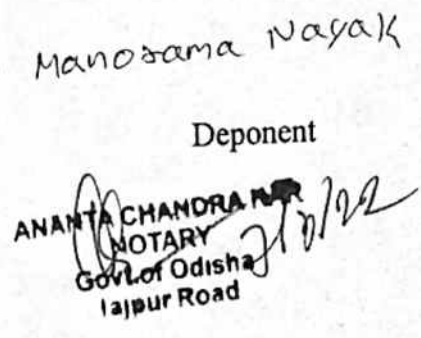 Manorama Nayak
Deponent
ANANTA CHANDRA KAR
NOTARY
Govt.of Odisha
Jajpur Road